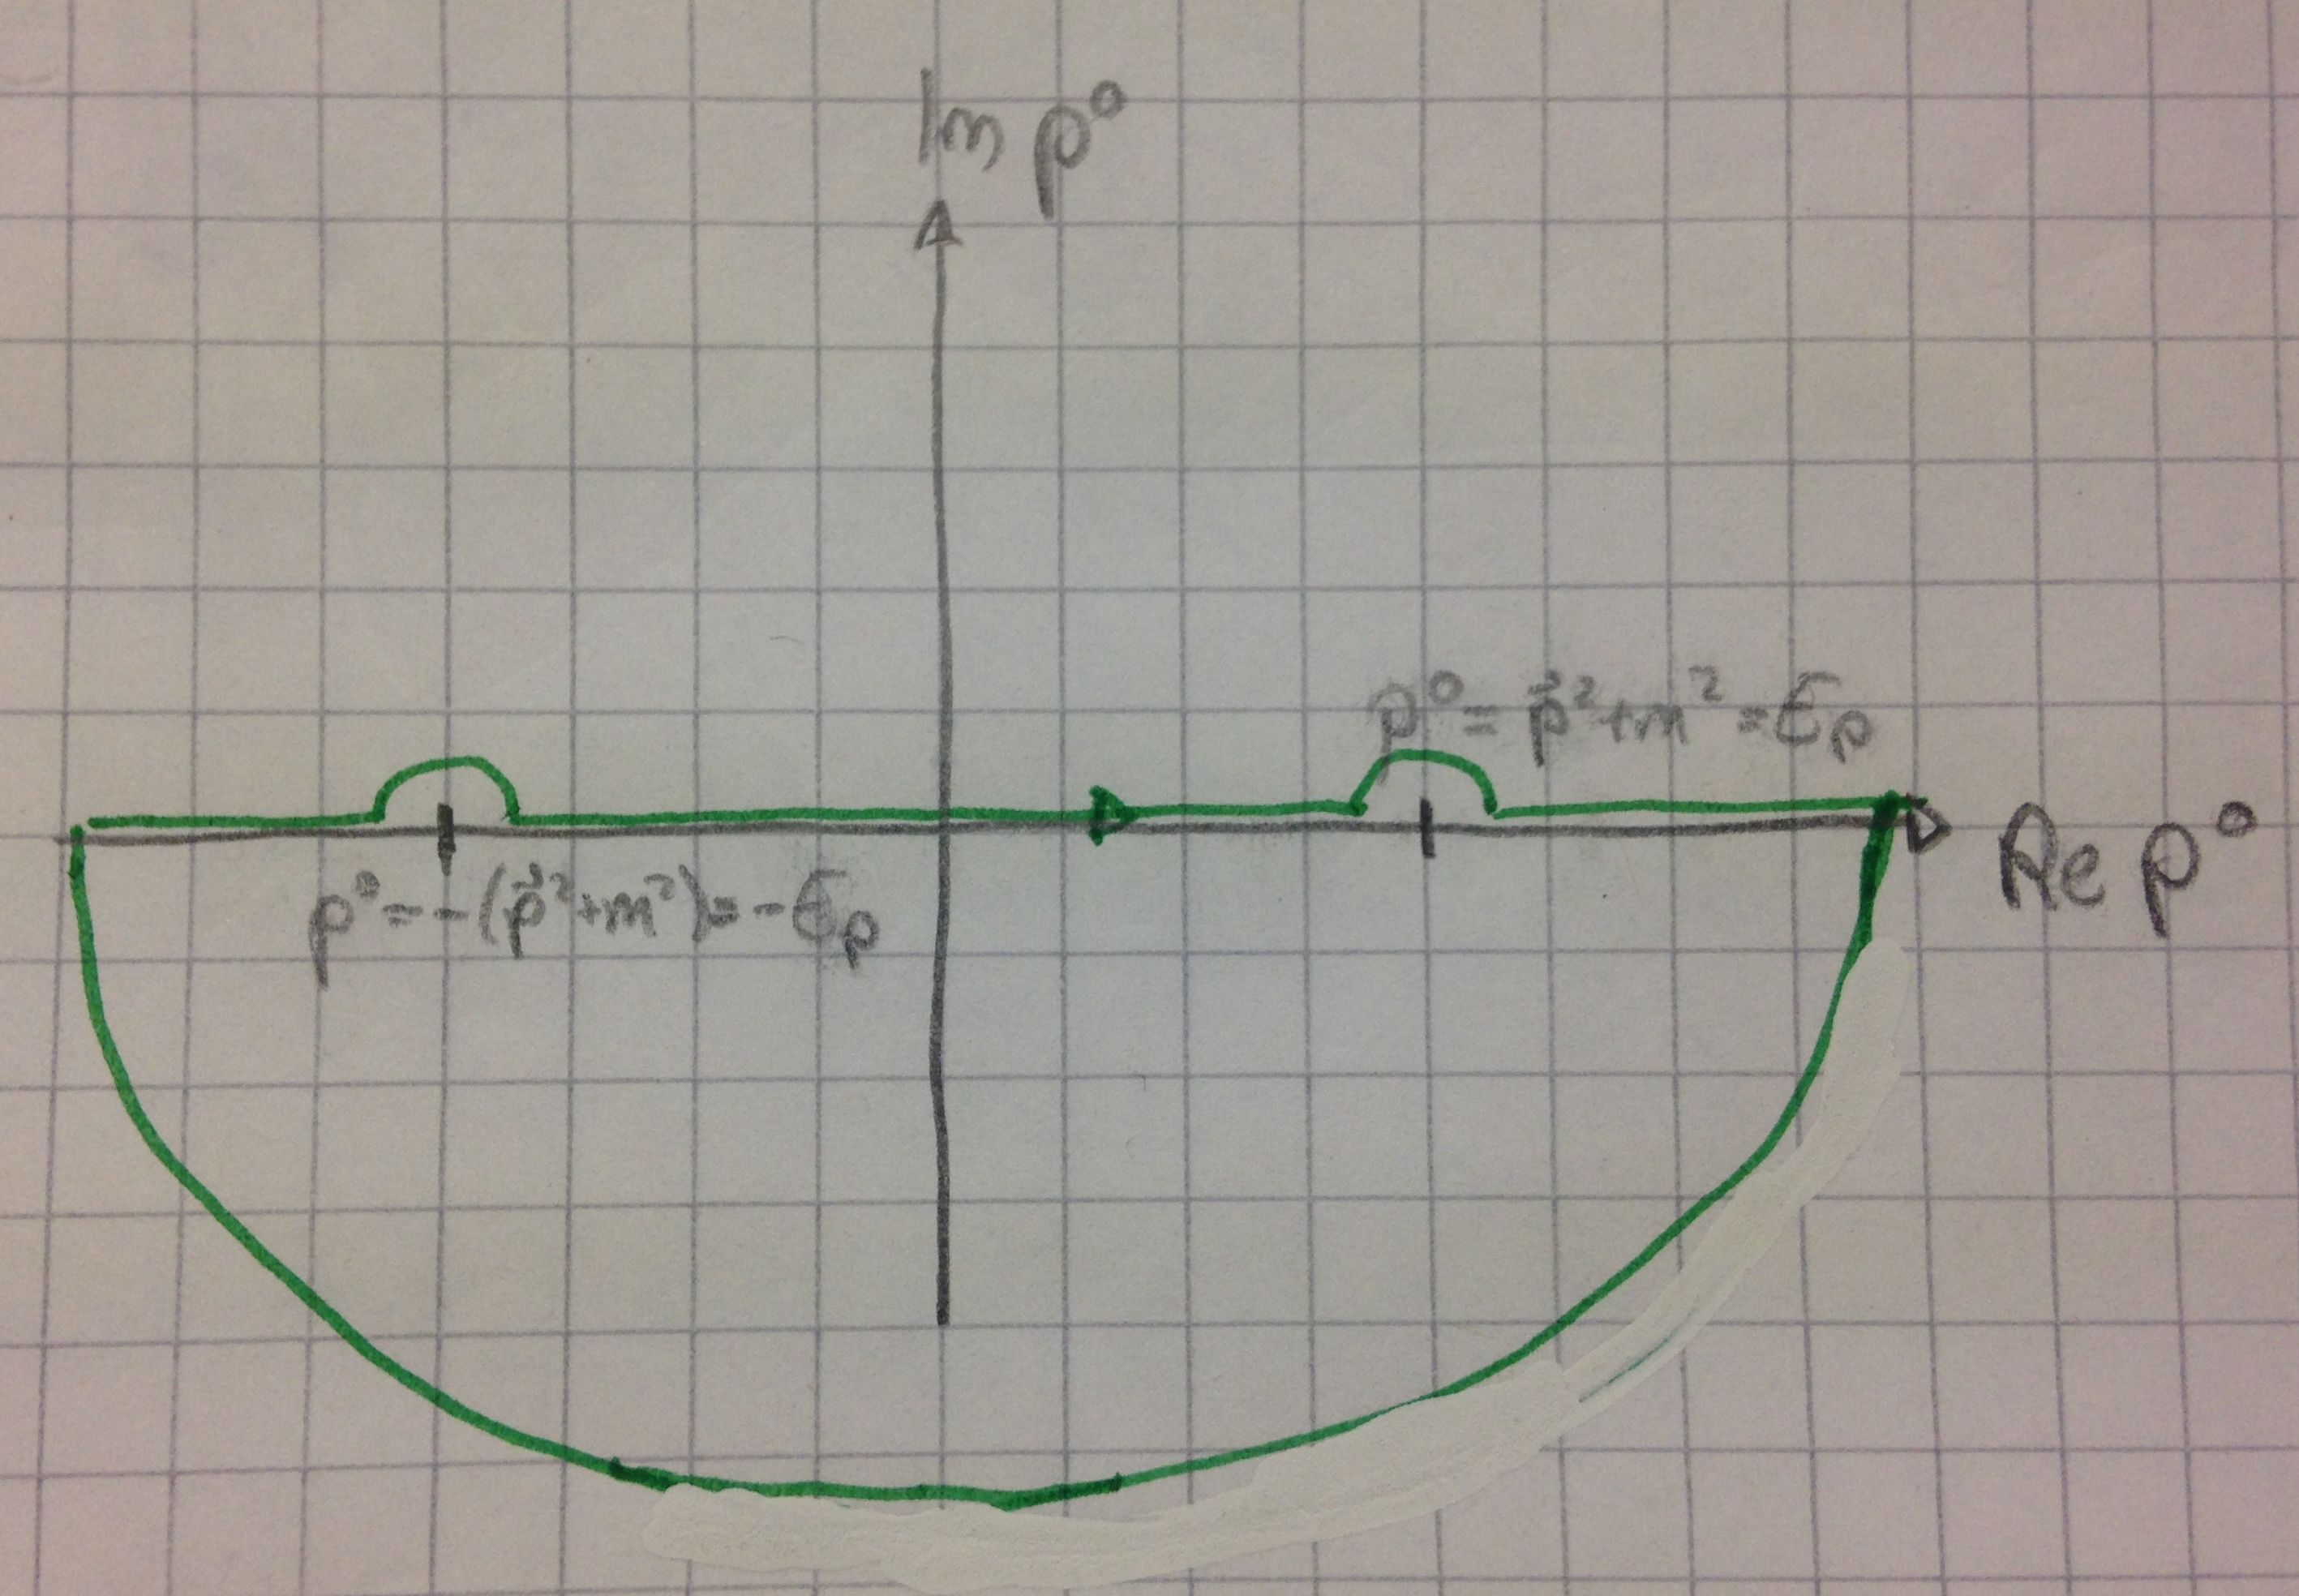 Im p⁰
p⁰ = p⃗² + m² = Eₚ
Re p⁰
p⁰ = -(p⃗² + m²) = -Eₚ